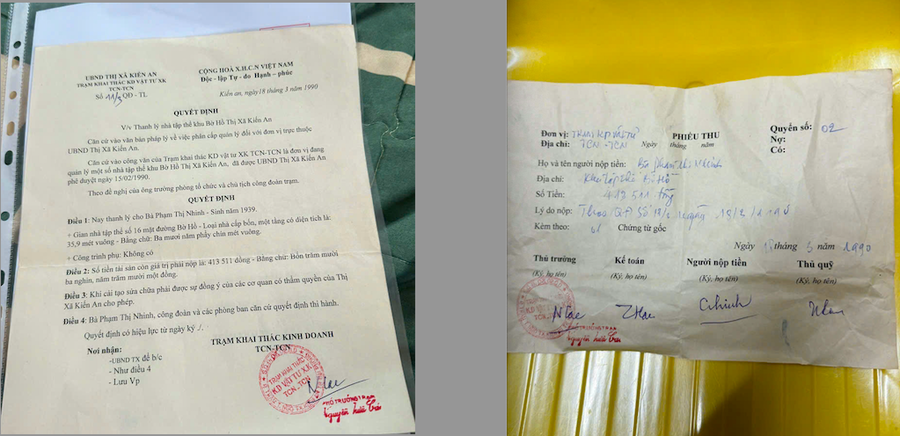 UBND THỊ XÃ KIẾN AN
TRẠM KHAI THÁC KD VẬT TƯ XK
TCN-TCN
Số 11/3 QĐ - TL
CỘNG HOÀ X.H.C.N VIỆT NAM
Độc - lập Tự - do Hạnh - phúc
Kiến an, ngày 18 tháng 3 năm 1990
QUYẾT ĐỊNH
V/v Thanh lý nhà tập thể khu Bờ Hồ Thị Xã Kiến An
Căn cứ vào văn bản pháp lý về việc phân cấp quản lý đối với đơn vị trực thuộc
UBND Thị Xã Kiến An.
Căn cứ vào công văn của Trạm khai thác KD vật tư XK TCN-TCN là đơn vị đang
quản lý một số nhà tập thể khu Bờ Hồ Thị Xã Kiến An, đã được UBND Thị Xã Kiến An
phê duyệt ngày 15/02/1990.
Theo đề nghị của ông trưởng phòng tổ chức và chủ tịch công đoàn trạm.
QUYẾT ĐỊNH
Điều 1: Nay thanh lý cho Bà Phạm Thị Nhinh - Sinh năm 1939.
+ Gian nhà tập thể số 16 mặt đường Bờ Hồ - Loại nhà cấp bốn, một tầng có diện tích là:
35,9 mét vuông - Bằng chữ: Ba mươi năm phẩy chín mét vuông.
+ Công trình phụ: Không có
Điều 2: Số tiền tài sản còn giá trị phải nộp là: 413 511 đồng - Bằng chữ: Bốn trăm mười
ba nghìn, năm trăm mười một đồng.
Điều 3: Khi cải tạo sửa chữa phải được sự đồng ý của các cơ quan có thẩm quyền của Thị
Xã Kiến An cho phép.
Điều 4: Bà Phạm Thị Nhinh, công đoàn và các phòng ban căn cứ quyết định thi hành.
Quyết định có hiệu lực từ ngày ký ./.
Nơi nhận:
-UBND TX để b/c
- Như điều 4
- Lưu Vp
TRẠM KHAI THÁC KINH DOANH
TCN-TCN
TRẠM KHAI THÁC
KD VẬT TƯ XK
TCN-TCN
PHÓ TRƯỞNG TRẠM
Đơn vị: Trạm KD vật tư
Địa chỉ: TCN-TCN
PHIẾU THU
Ngày tháng năm
Quyển số: 02
Nợ:
Có:
Họ và tên người nộp tiền: Bà Phạm Thị Nhinh
Địa chỉ: Khu tập thể Bờ Hồ
Số Tiền: 413 511 đồng
Lý do nộp: Theo QĐ số
Kèm theo: 01 Chứng từ gốc
Ngày tháng 3 năm 1990
Thủ trưởng Kế toán Người nộp tiền Thủ quỹ
(Ký, họ tên) (Ký, họ tên) (Ký, họ tên) (Ký, họ tên)